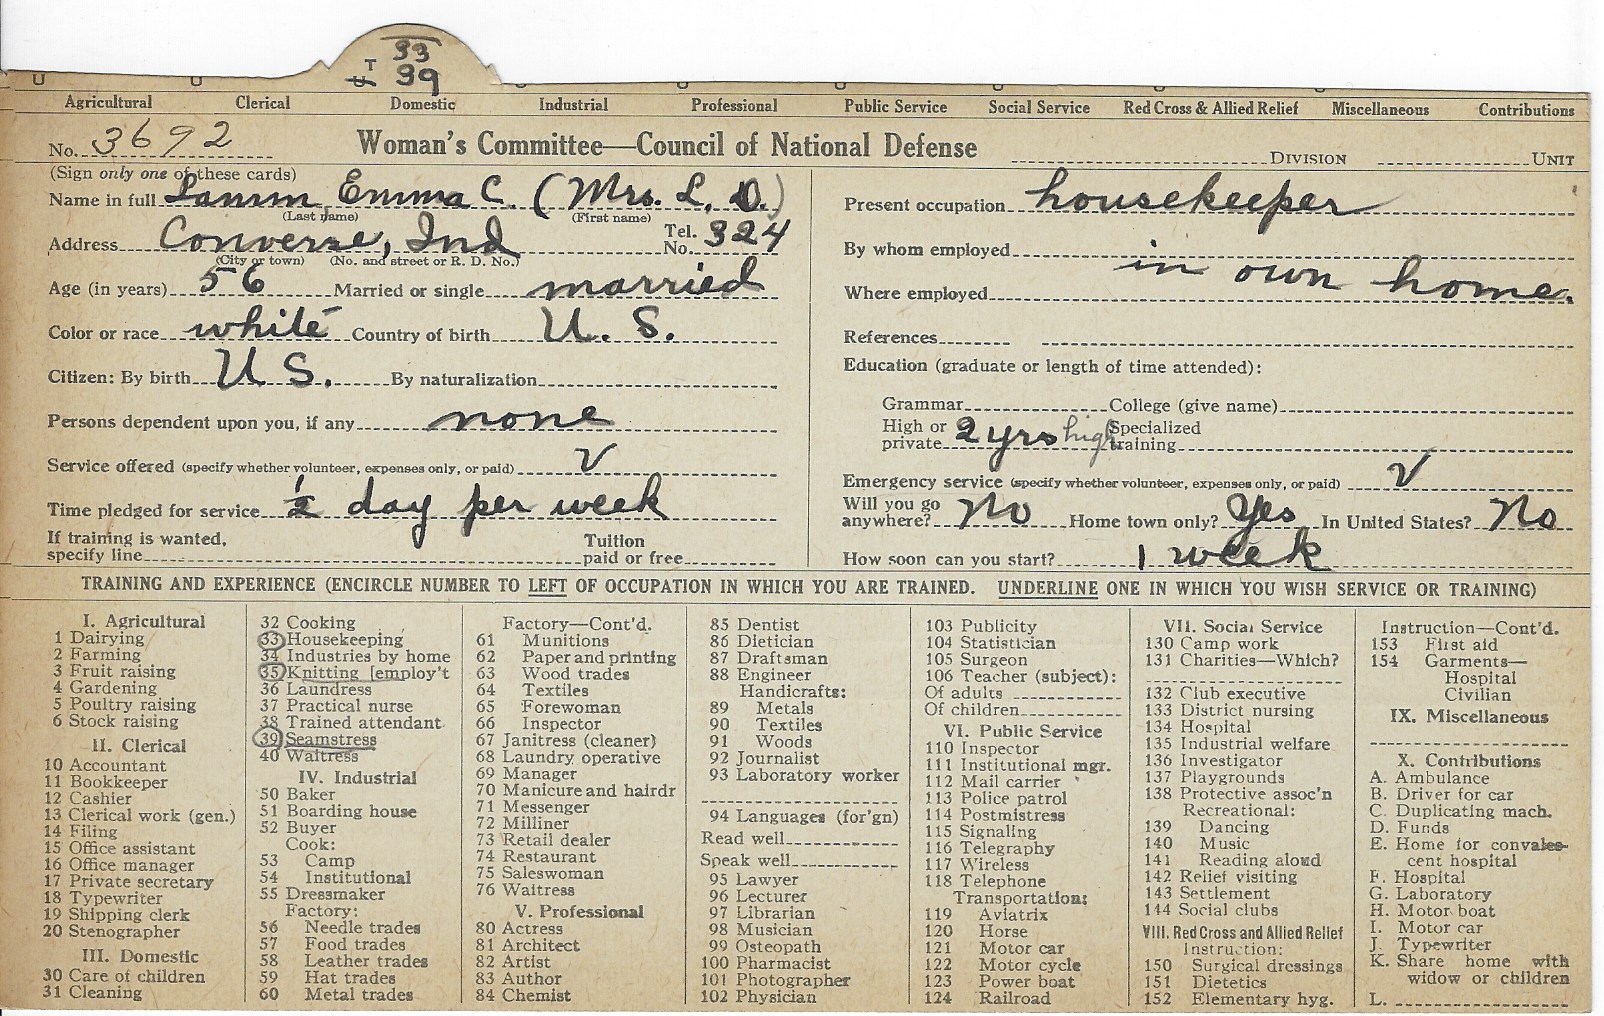 33
T 39
U
Agricultural Clerical Domestic Industrial Professional Public Service Social Service Red Cross & Allied Relief Miscellaneous Contributions
No. 3692 Woman's Committee—Council of National Defense DIVISION UNIT
(Sign only one of these cards)
Name in full Lamm Emma C. (Mrs. L. D.)
(Last name) (First name)
Address Converse, Ind Tel. No. 324
(City or town) (No. and street or R. D. No.)
Age (in years) 56 Married or single married
Color or race white Country of birth U. S.
Citizen: By birth U S. By naturalization
Persons dependent upon you, if any none
Service offered (specify whether volunteer, expenses only, or paid) V
Time pledged for service ½ day per week
If training is wanted, specify line Tuition paid or free
Present occupation housekeeper
By whom employed
Where employed in own home.
References
Education (graduate or length of time attended):
Grammar College (give name)
High or private 2 yrs high Specialized training
Emergency service (specify whether volunteer, expenses only, or paid) V
Will you go anywhere? No Home town only? Yes In United States? No
How soon can you start? 1 week
TRAINING AND EXPERIENCE (ENCIRCLE NUMBER TO LEFT OF OCCUPATION IN WHICH YOU ARE TRAINED. UNDERLINE ONE IN WHICH YOU WISH SERVICE OR TRAINING)
I. Agricultural
1 Dairying
2 Farming
3 Fruit raising
4 Gardening
5 Poultry raising
6 Stock raising
II. Clerical
10 Accountant
11 Bookkeeper
12 Cashier
13 Clerical work (gen.)
14 Filing
15 Office assistant
16 Office manager
17 Private secretary
18 Typewriter
19 Shipping clerk
20 Stenographer
III. Domestic
30 Care of children
31 Cleaning
32 Cooking
33 Housekeeping
34 Industries by home
35 Knitting [employ't
36 Laundress
37 Practical nurse
38 Trained attendant
39 Seamstress
40 Waitress
IV. Industrial
50 Baker
51 Boarding house
52 Buyer
Cook:
53 Camp
54 Institutional
55 Dressmaker
Factory:
56 Needle trades
57 Food trades
58 Leather trades
59 Hat trades
60 Metal trades
Factory—Cont'd.
61 Munitions
62 Paper and printing
63 Wood trades
64 Textiles
65 Forewoman
66 Inspector
67 Janitress (cleaner)
68 Laundry operative
69 Manager
70 Manicure and hairdr
71 Messenger
72 Milliner
73 Retail dealer
74 Restaurant
75 Saleswoman
76 Waitress
V. Professional
80 Actress
81 Architect
82 Artist
83 Author
84 Chemist
85 Dentist
86 Dietician
87 Draftsman
88 Engineer
Handicrafts:
89 Metals
90 Textiles
91 Woods
92 Journalist
93 Laboratory worker
94 Languages (for'gn)
Read well
Speak well
95 Lawyer
96 Lecturer
97 Librarian
98 Musician
99 Osteopath
100 Pharmacist
101 Photographer
102 Physician
103 Publicity
104 Statistician
105 Surgeon
106 Teacher (subject):
Of adults
Of children
VI. Public Service
110 Inspector
111 Institutional mgr.
112 Mail carrier
113 Police patrol
114 Postmistress
115 Signaling
116 Telegraphy
117 Wireless
118 Telephone
Transportation:
119 Aviatrix
120 Horse
121 Motor car
122 Motor cycle
123 Power boat
124 Railroad
VII. Social Service
130 Camp work
131 Charities—Which?
132 Club executive
133 District nursing
134 Hospital
135 Industrial welfare
136 Investigator
137 Playgrounds
138 Protective assoc'n
Recreational:
139 Dancing
140 Music
141 Reading aloud
142 Relief visiting
143 Settlement
144 Social clubs
VIII. Red Cross and Allied Relief
Instruction:
150 Surgical dressings
151 Dietetics
152 Elementary hyg.
Instruction—Cont'd.
153 First aid
154 Garments—
Hospital
Civilian
IX. Miscellaneous
X. Contributions
A. Ambulance
B. Driver for car
C. Duplicating mach.
D. Funds
E. Home for convales-
cent hospital
F. Hospital
G. Laboratory
H. Motor boat
I. Motor car
J. Typewriter
K. Share home with
widow or children
L.